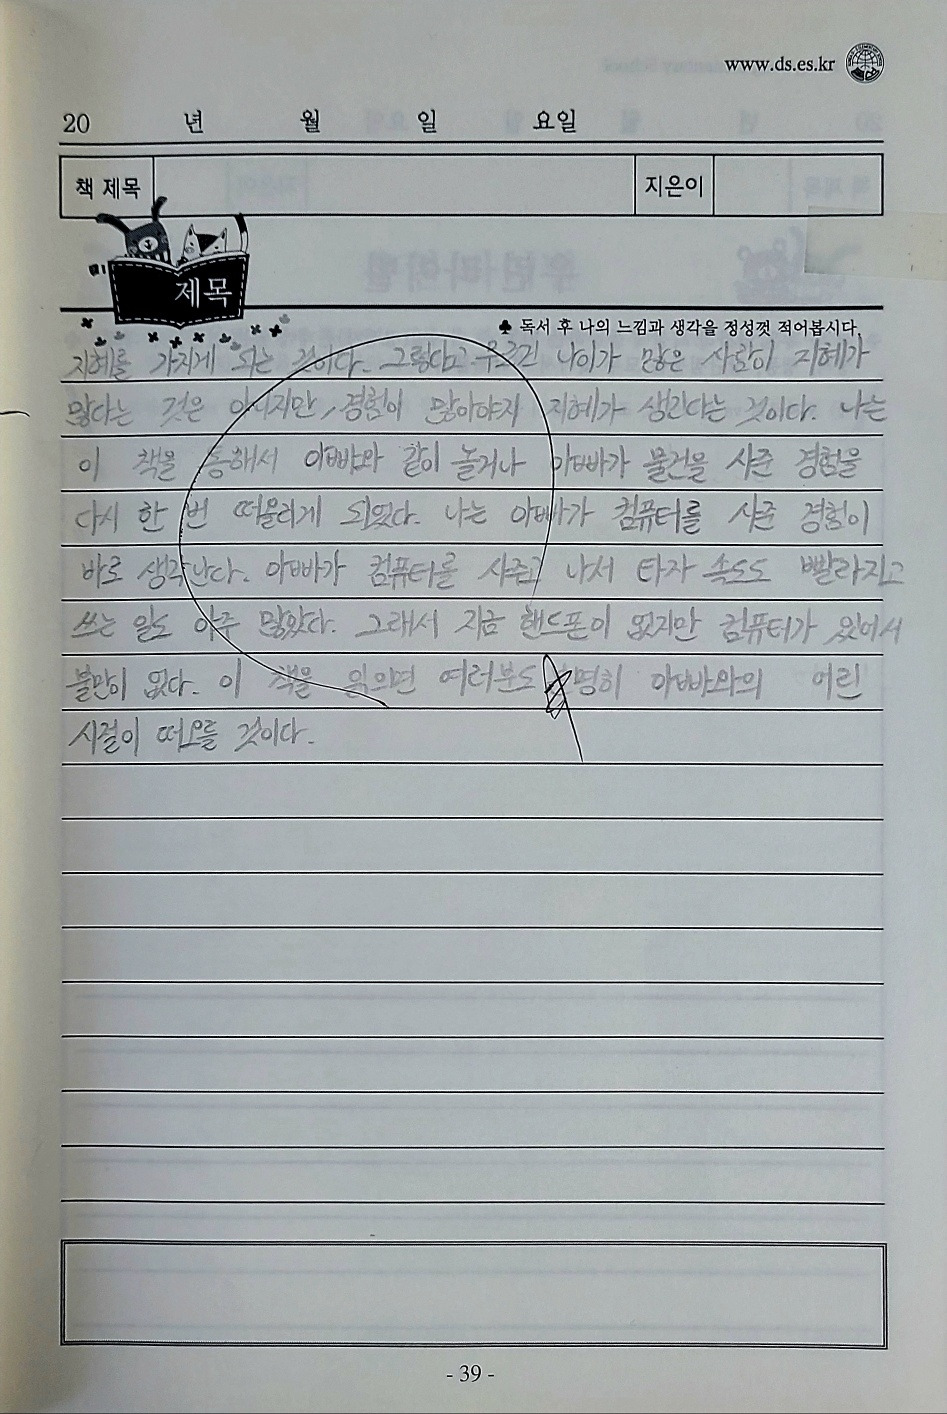 www.ds.es.kr
20 년 월 일 요일
책 제목 지은이
제목
♣ 독서 후 나의 느낌과 생각을 정성껏 적어봅시다.
지혜를 가지게 되는 것이다. 그렇다고 무조건 나이가 많은 사람이 지혜가
많다는 것은 아니지만, 경험이 많아야지 지혜가 생긴다는 것이다. 나는
이 책을 통해서 아빠와 같이 놀거나 아빠가 물건을 사준 경험을
다시 한 번 떠올리게 되었다. 나는 아빠가 컴퓨터를 사준 경험이
바로 생각난다. 아빠가 컴퓨터를 사주고 나서 타자 속도도 빨라지고
쓰는 일도 아주 많았다. 그래서 지금 핸드폰이 없지만 컴퓨터가 있어서
불만이 없다. 이 책을 읽으면 여러분도 명히 아빠와의 어린
시절이 떠오를 것이다.
- 39 -